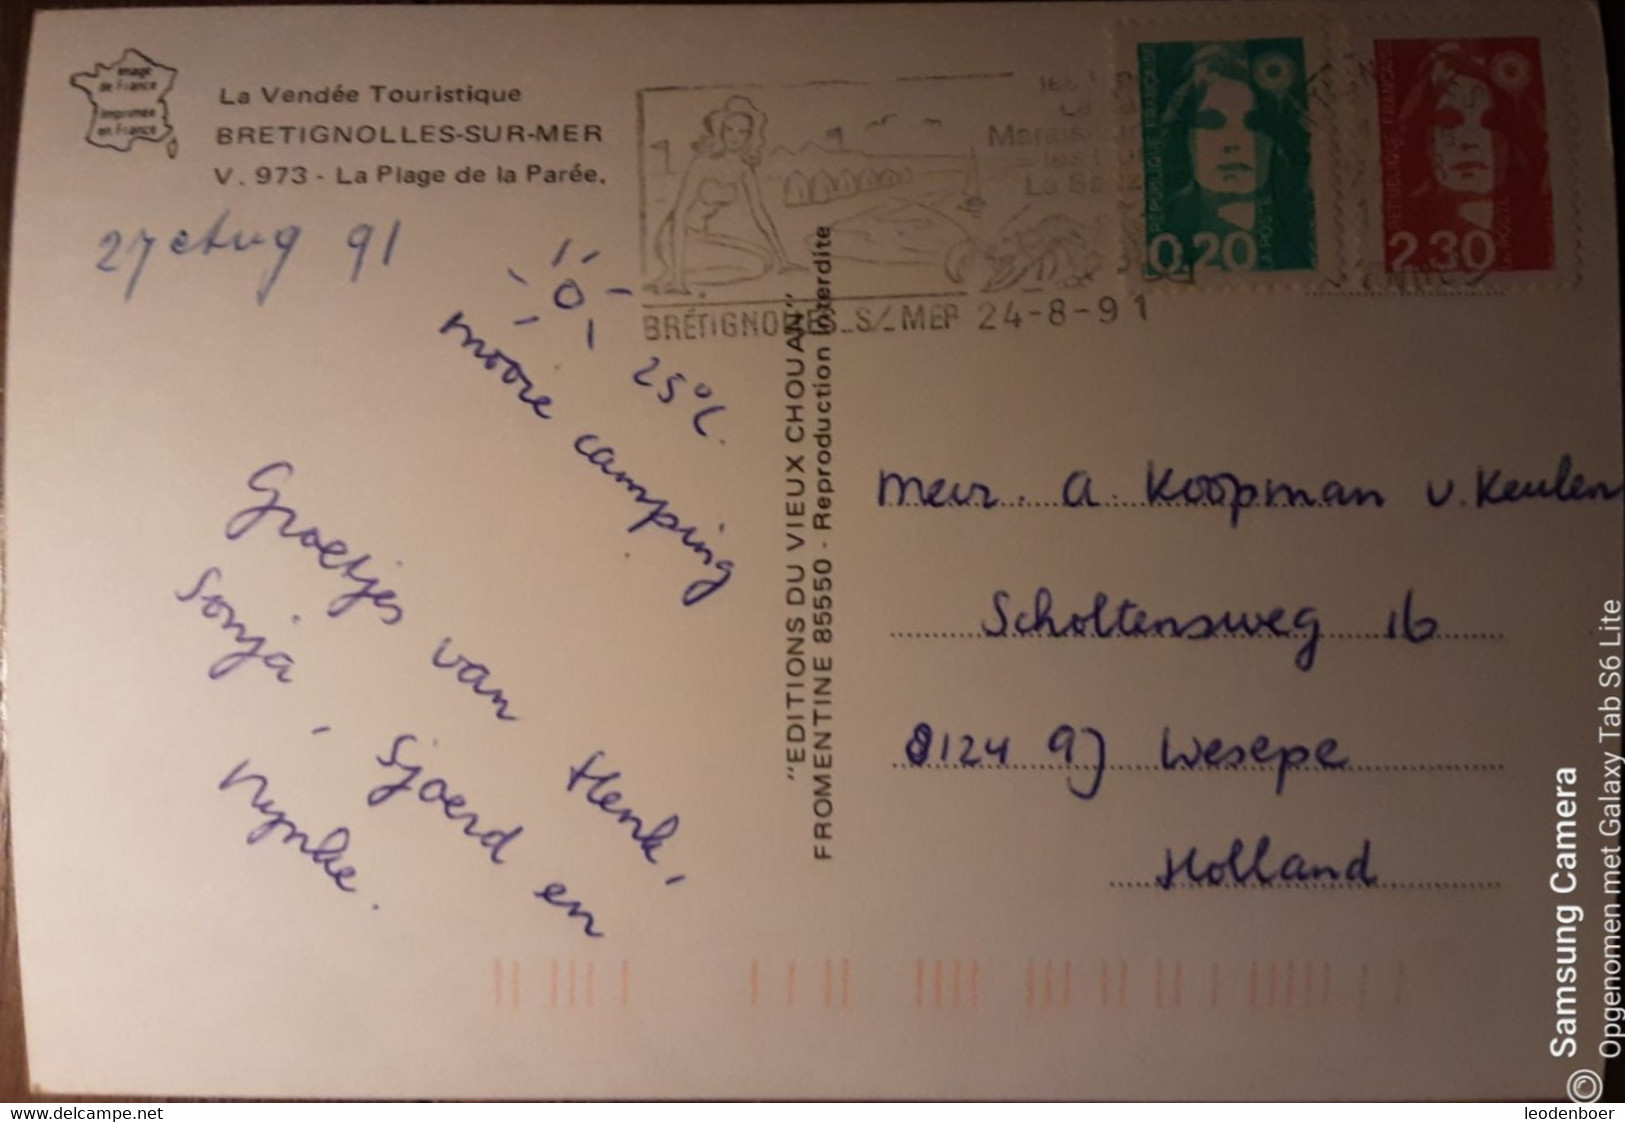 Image
de France
Imprimée
en France
La Vendée Touristique
BRETIGNOLLES-SUR-MER
V. 973 - La Plage de la Parée.
27 Aug 91
25°C.
mooie camping
Groetjes van Henk,
Sonja, Sjoerd en
Nynke.
BRÉTIGNOLLES-S/-MER 24-8-91
REPUBLIQUE FRANÇAISE
0,20
LA POSTE
REPUBLIQUE FRANÇAISE
2,30
LA POSTE
"EDITIONS DU VIEUX CHOUAN"
FROMENTINE 85550 - Reproduction Interdite
Mevr. A. Koopman v. Keulen
Scholtensweg 16
8124 AJ Wesepe
Holland
Samsung Camera
Opgenomen met Galaxy Tab S6 Lite
www.delcampe.net
leodenboer